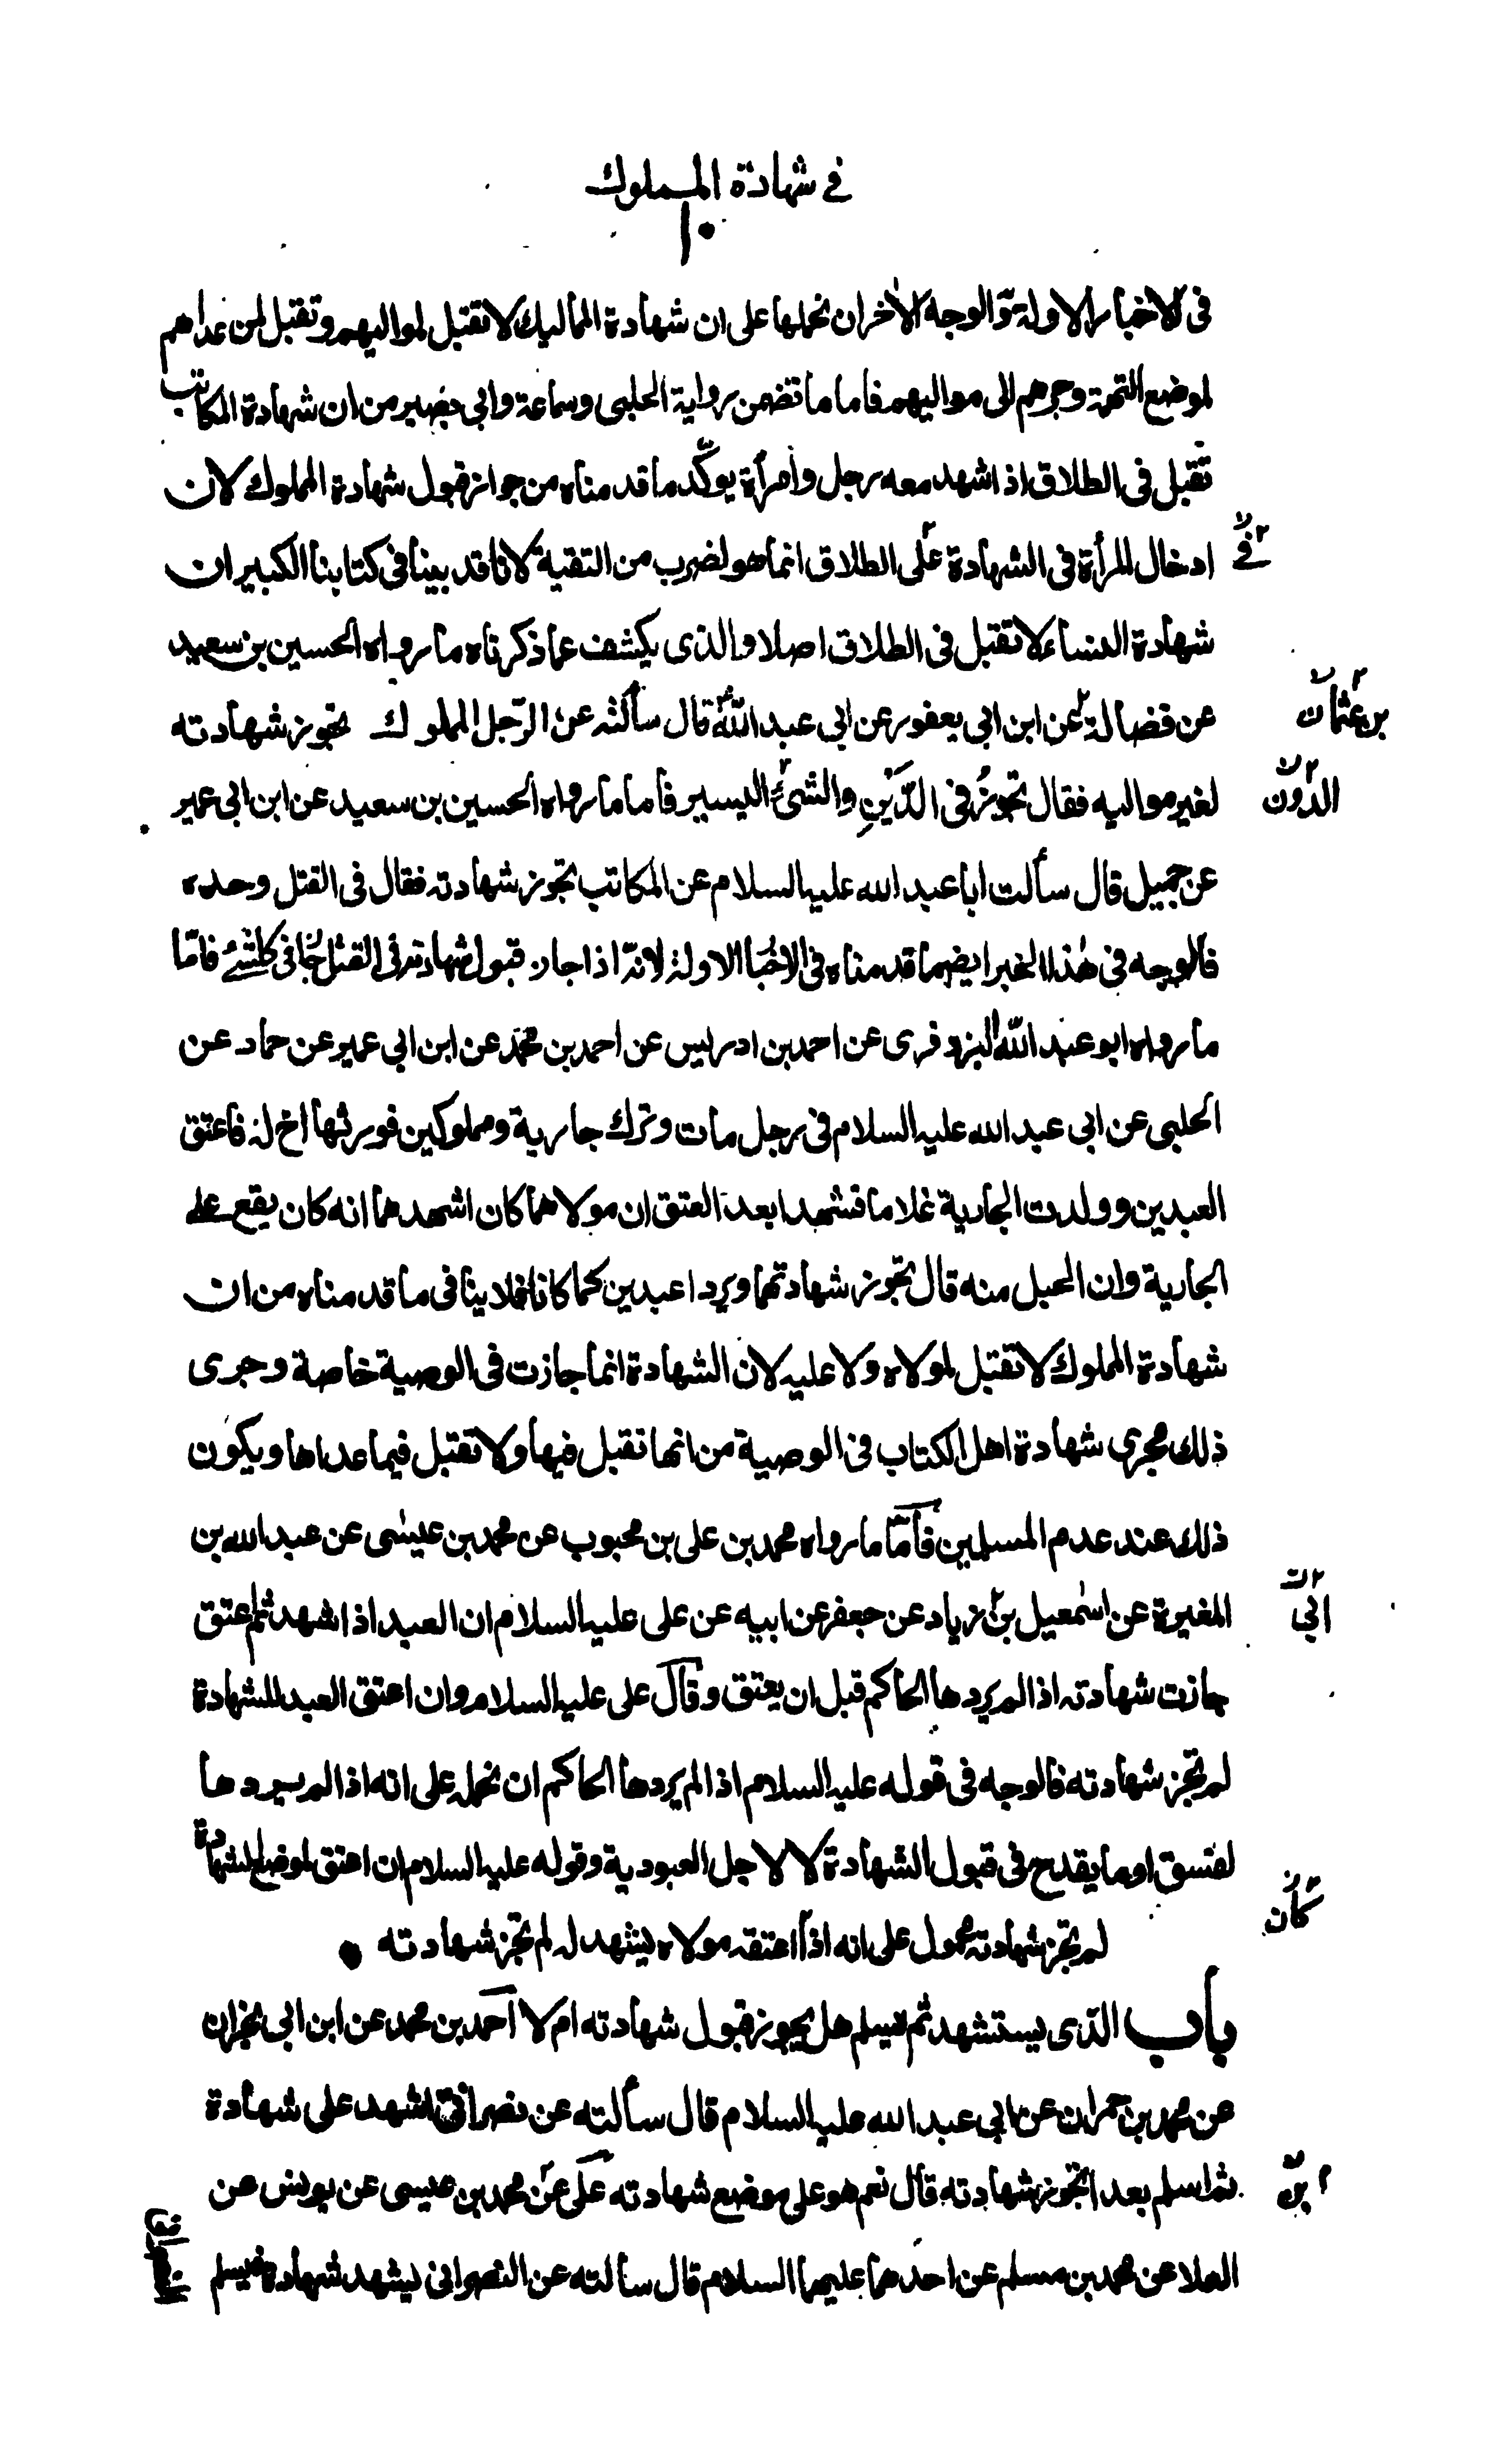 في شهادة المملوك
١٠
في الاخبار الاولة والوجه الاخر ان نحملها على ان شهادة المماليك لا تقبل لمواليهم وتقبل لمن عداهم
لموضع التهمة وجرهم الى مواليهم فاما ما تضمن رواية الحلبي وسماعة وابي بصير من ان شهادة المكاتب
تقبل في الطلاق اذا شهد معه رجل وامرأة يوكّد ما قدمناه من جواز قبول شهادة المملوك لان
ادخال المرأة في الشهادة على الطلاق انما هو لضرب من التقية لانا قد بينا في كتابنا الكبير ان
في
شهادة النساء لا تقبل في الطلاق اصلا والذى يكشف عما ذكرناه ما رواه الحسين بن سعيد
عن فضالة عن ابن ابي يعفور عن ابي عبد اللّٰه قال سألته عن الرّجل المملوك تجوز شهادته
بن عثمان
لغير مواليه فقال تجوزُ في الدَّيْنِ والشئ اليسير فاما ما رواه الحسين بن سعيد عن ابن ابي عمير
الدون
عن جميل قال سألت ابا عبد الله عليه السلام عن المكاتب تجوز شهادته فقال في القتل وحده
فالوجه في هٰذا الخبر ايضا ما قدمناه في الاخبا الاولة لانّه اذا جاز قبول شهادته في القتل جاز في كلّ شئ فامّا
ما رواه ابو عبد اللّٰه البزوفرى عن احمد بن ادريس عن احمد بن محمد عن ابن ابي عمير عن حماد عن
الحلبي عن ابي عبد الله عليه السلام في رجل مات وترك جارية ومملوكين فورثها اخ له فاعتق
العبدين وولدت الجارية غلاما فشهدا بعد العتق ان مولاهما كان اشهدهما انه كان يقع على
الجارية وان الحبل منه قال تجوز شهادتهما ويردا عبدين كما كانا فلا ينافى ما قدمناه من ان
شهادة المملوك لا تقبل لمولاه ولا عليه لان الشهادة انما جازت في الوصية خاصة وجرى
ذلك مجرى شهادة اهل الكتاب في الوصية من انها تقبل فيها ولا تقبل فيما عداها ويكون
ذلك عند عدم المسلمين فامّا ما رواه محمد بن على بن محبوب عن محمد بن عيسٰى عن عبد الله بن
المغيرة عن اسمٰعيل بن زياد عن جعفر عن ابيه عن على عليه السلام ان العبد اذا شهد ثم اعتق
ابي
جازت شهادته اذا لم يردها الحاكم قبل ان يعتق وقال على عليه السلام وان اعتق العبد للشهادة
لم تجز شهادته فالوجه في قوله عليه السلام اذا لم يردها الحاكم ان نحمله على انه اذا لم يردها
لفسق او ما يقدح في قبول الشهادة لا لاجل العبودية وقوله عليه السلام ان اعتق لموضع الشهادة
كان
لم تجز شهادته محمول على انه اذا اعتقه مولاه ليشهد له لم تجز شهادته
باب الذى يستشهد ثم يسلم هل يجوز قبول شهادته ام لا احمد بن محمد عن ابن ابي نجران
عن محمد بن حمران عن ابي عبد الله عليه السلام قال سألته عن نصرانيّ اشهد على شهادة
ثم اسلم بعد اتجوز شهادته قال نعم هو على موضع شهادته على عن محمد بن عيسى عن يونس عن
بن
العلا عن محمد بن مسلم عن احدهما عليهما السلام قال سألته عن النصرانى يشهد شهادة فيسلم